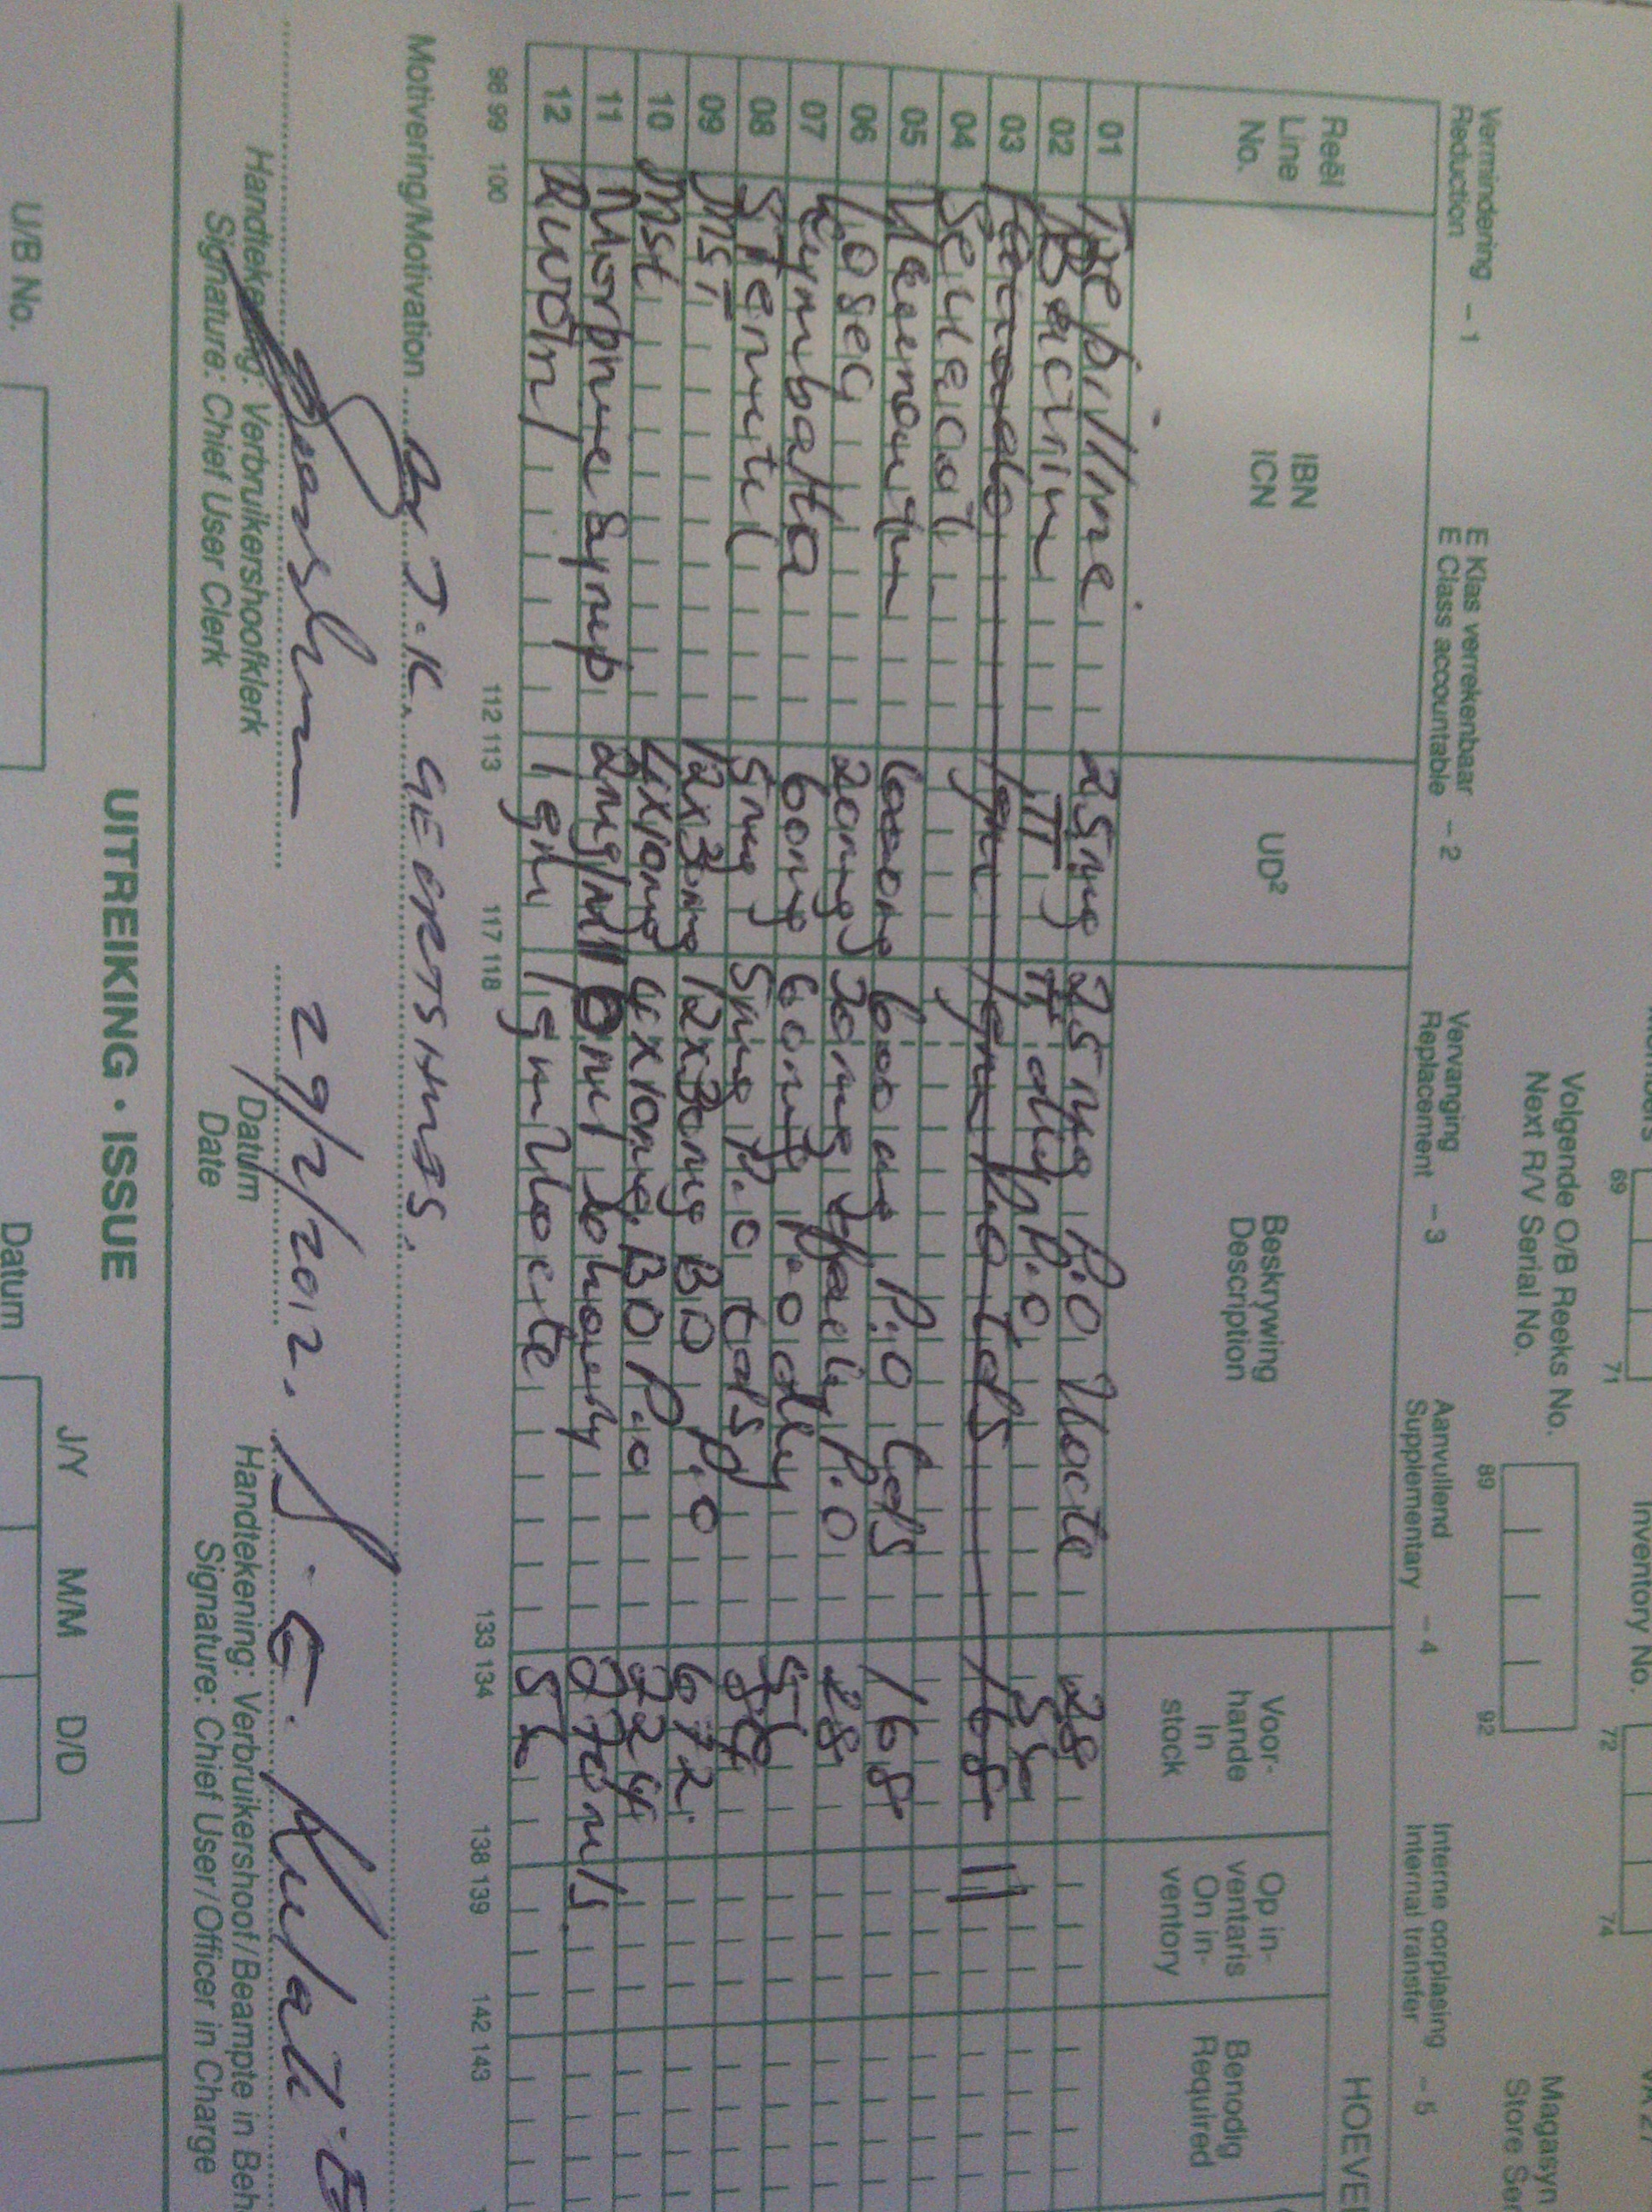 Volgende O/B Reeks No.
Next R/V Serial No.
Inventory No.
69 71 72 74
89 92
Magasyn
Vermindering – 1
Reduction
E Klas verrekenbaar – 2
E Class accountable
Vervanging – 3
Replacement
Aanvullend – 4
Supplementary
Interne oorplasing – 5
Internal transfer
Reël
Line
No.
IBN
ICN
UD²
Beskrywing
Description
Voor-
hande
In
stock
Op in-
ventaris
On in-
ventory
Benodig
Required
01 Trepilline 25mg 25mg P.O Nocte 28
02 Bactrim II II dly P.O 56
03 1gm 1gm P.O tds 168
04 Selecat
05 Neurontin 600mg 600mg P.O tds 168
06 Losec 20mg 20mg P.O 28
07 Cymbalta 60mg 60mg P.O dly 56
08 Stemetil 5mg 5mg P.O tds 84
09 MST 12x30mg 12x30mg BD P.O 672
10 MST 4x10mg 4x10mg BD P.O 224
11 Morphine Syrup 2mg/ml 10ml hourly
12 Rivotril 1gm 1gm Nocte 56
98 99 100 112 113 117 118 133 134 138 139 142 143
Motivering/Motivation J.K. GEERTSHUIS.
29/2/2012.
Handtekening: Verbruikershoofklerk
Signature: Chief User Clerk
Datum
Date
Handtekening: Verbruikershoof/Beampte in Beh
Signature: Chief User/Officer in Charge
UITREIKING · ISSUE
U/B No.
Datum
J/Y M/M D/D